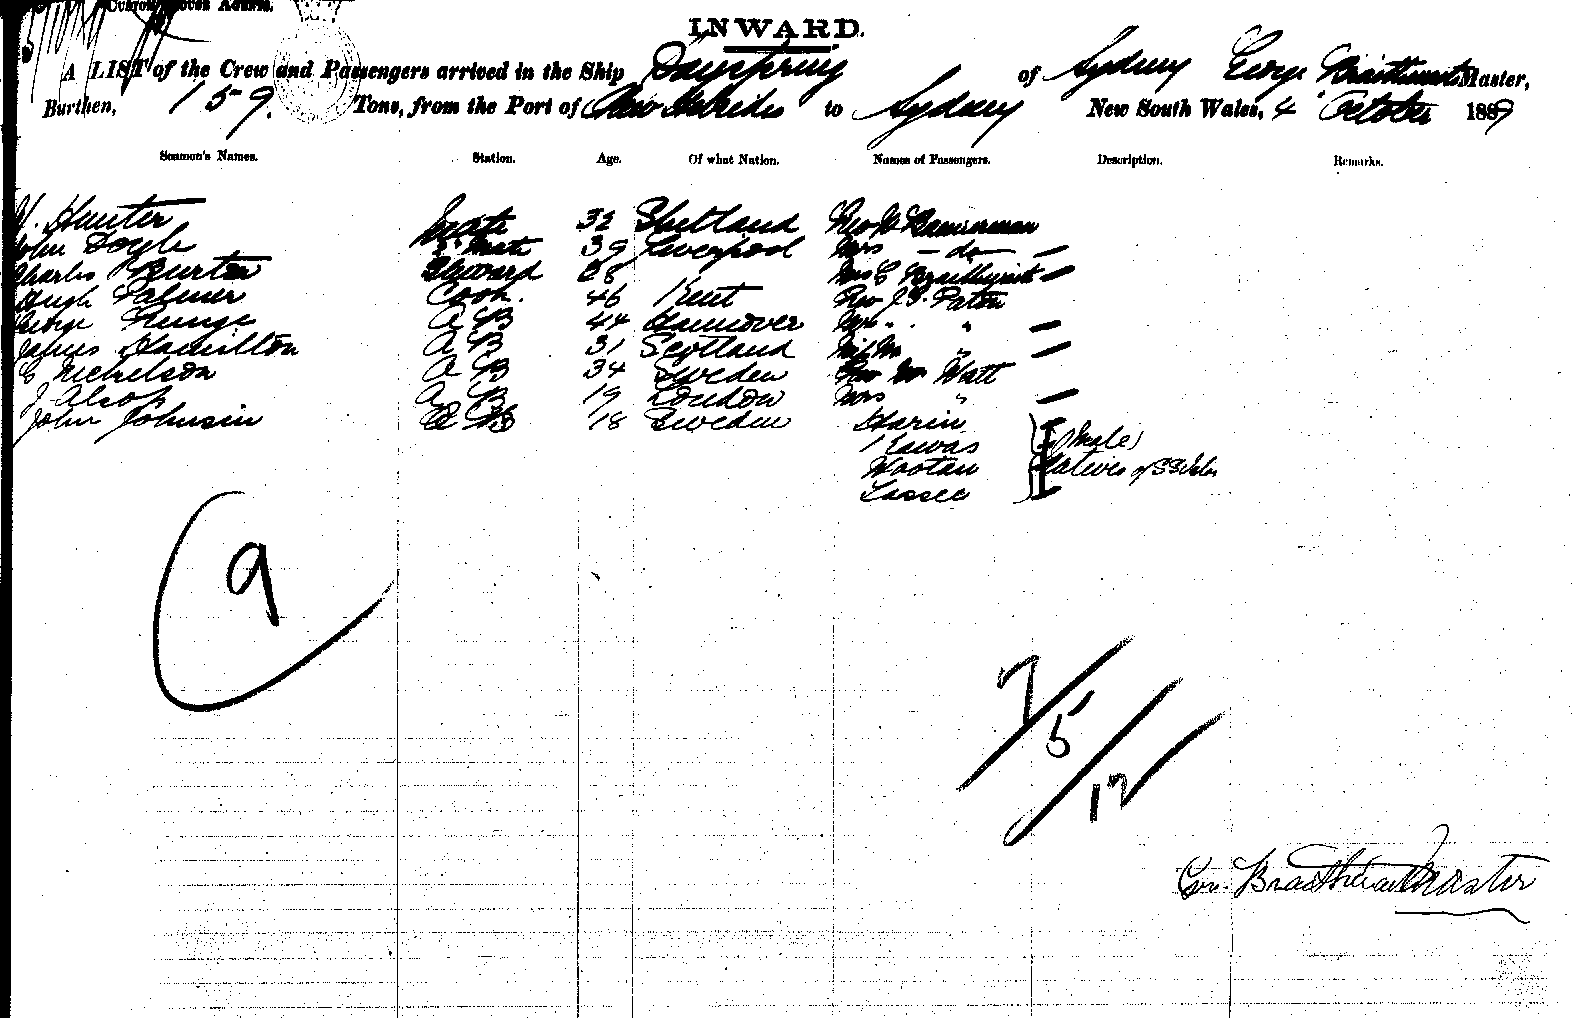 INWARD.
A LIST of the Crew and Passengers arrived in the Ship Dayspring of Sydney George Braithwaite Master,
Burthen, 159. Tons, from the Port of New Hebrides to Sydney New South Wales, 4 October 188
Seamen's Names. Station. Age. Of what Nation. Names of Passengers. Description. Remarks.
Hunter Mate 32 Shetland Bannerman
John Doyle 2 Mate 39 Liverpool Mrs - do -
Charles Burton Steward 28 Mrs
Hugh Palmer Cook. 46 Kent Rev J. G. Paton
George Runge A B 44 Hannover Mrs "
James Hamilton A B 31 Scotland "
C Nichelson A B 34 Sweden Rev Wm Watt
J Alsop A B 19 London Mrs "
John Johnson 18 Sweden
(male)
Natives of S S Isles
9
7/5/12
Geo. Braithwaite Master